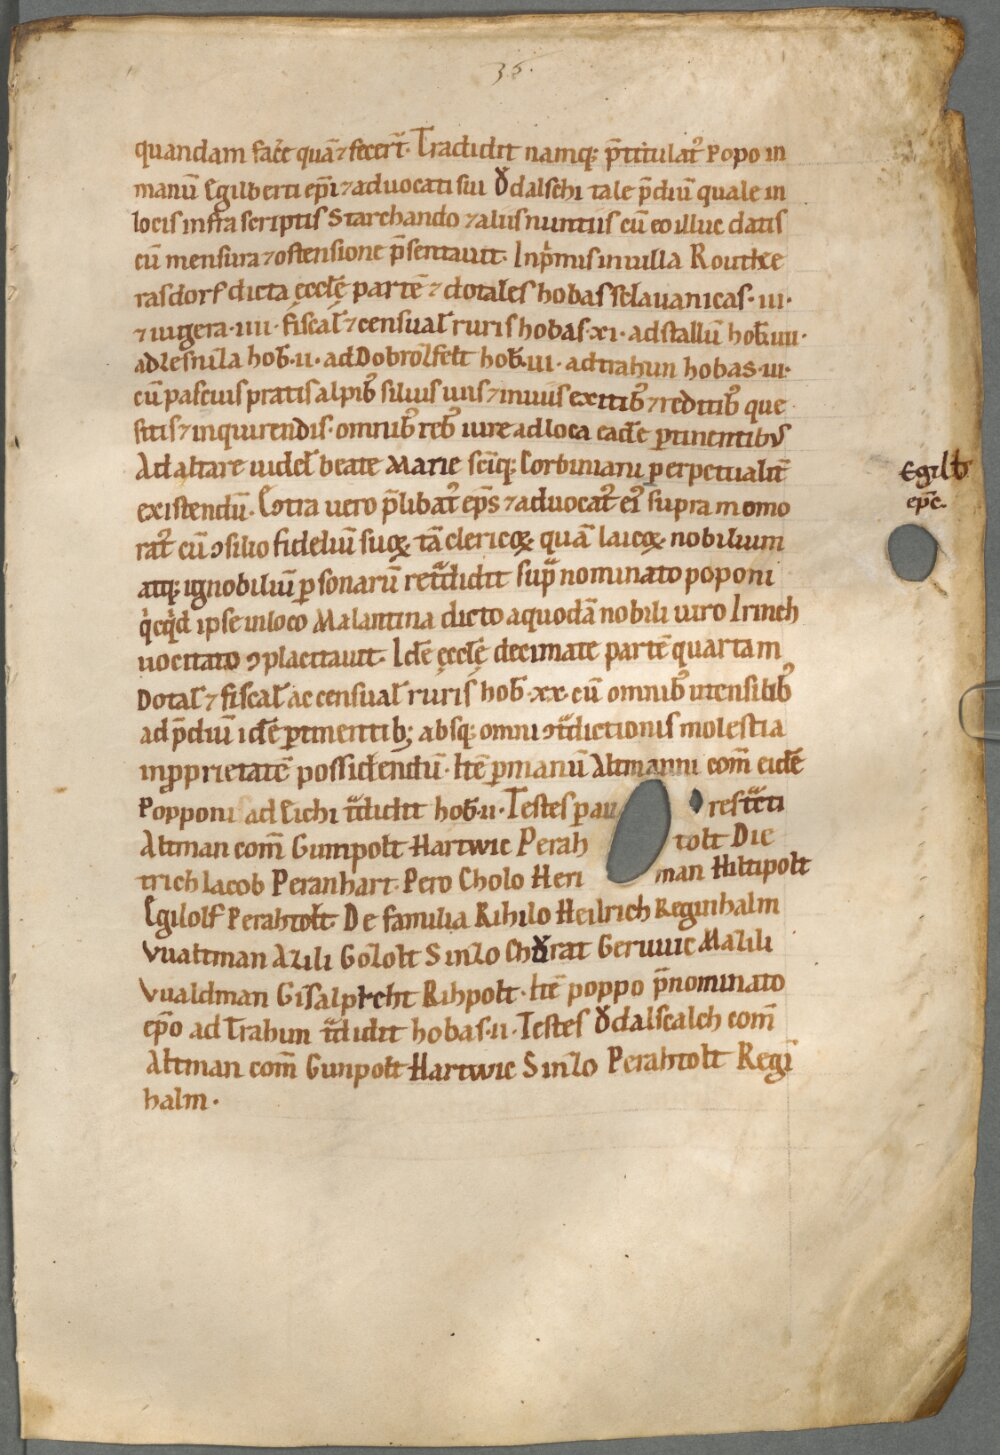 35.
quandam fac̄e quā ⁊ fecer̄t. Tradidit namq; p̄titulat᷒ Popo in
manū Egilberti ep̄i ⁊ aduocati sui Ŏdalschi tale p̄diū quale in
locis infra scriptis Starchando ⁊ aliis nuntiis cū eo illuc datis
cū mensura ⁊ ostensione p̄sentauit. Inp̄mis in uilla Routhe
rasdorf dicta ęccłę partē ⁊ dotales hobas sclauanicas · iii ·
⁊ iugera · iiii · fiscał ⁊ censuał ruris hobas · xi · ad stallū hob̄ · iiii ·
ad Lesnila hob̄ · ii · ad Dobrolfelt hob̄ · iii · ad trahun hobas · iii ·
cū pascuis pratis alpib᷒ siluis uiis ⁊ inuiis exitib᷒ ⁊ reditib᷒ que
sitis ⁊ inquirendis · omnib᷒ reb᷒ iure ad loca eadē ꝑtinentibus
Ad altare uidel̄ beate Marie scīq; Corbiniani perpetualit̄
existendū. Cͻtra uero p̄libat᷒ ep̄s ⁊ aduocat᷒ ei᷒ supra momo
rat᷒ cū ͻsilio fideliū suoꝝ tā clericoꝝ quā laicoꝝ nobilium
atq; ignobiliū ꝑsonarū retͣdidit supͣnominato poponi
qͥcqͥd ipse in loco Malantina dicto a quodā nobili uiro Irinch
uocitato ͻplacitauit. Idē ęccłę decimate partē quartam
Dotał ⁊ fiscał ac censuał ruris hob̄ · xx · cū omnib᷒ utensilib᷒
ad p̄diū idē ꝑtinentib; absq; omni ͻtͣdictionis molestia
in ꝓprietatē possidendū. Itē ꝑ manū Altmanni com̄ eidē
Popponi ad Eichi tͣdidit hob̄ · ii · Testes ꝑ au res tͣcti
Altman com̄ Gumpolt Hartwic Perah tolt Die
trich Iacob Peranhart. Pero Cholo Heri man Hiltipolt
Egilolf Perahtolt. De familia Rihilo Heilrich Reginhalm
VValtman Azili Gololt Sinzo Chŏrat Geruuic Mazili
VValdman Gisalpreht Rihpolt. Itē poppo p̄nominato
ep̄o ad Trahun tͣdidit hobas · ii · Testes Ŏdalscalch com̄
Altman com̄ Gunpolt Hartwic Sinzo Perahtolt Regī
halm ·
Egilb̄
ep̄c.